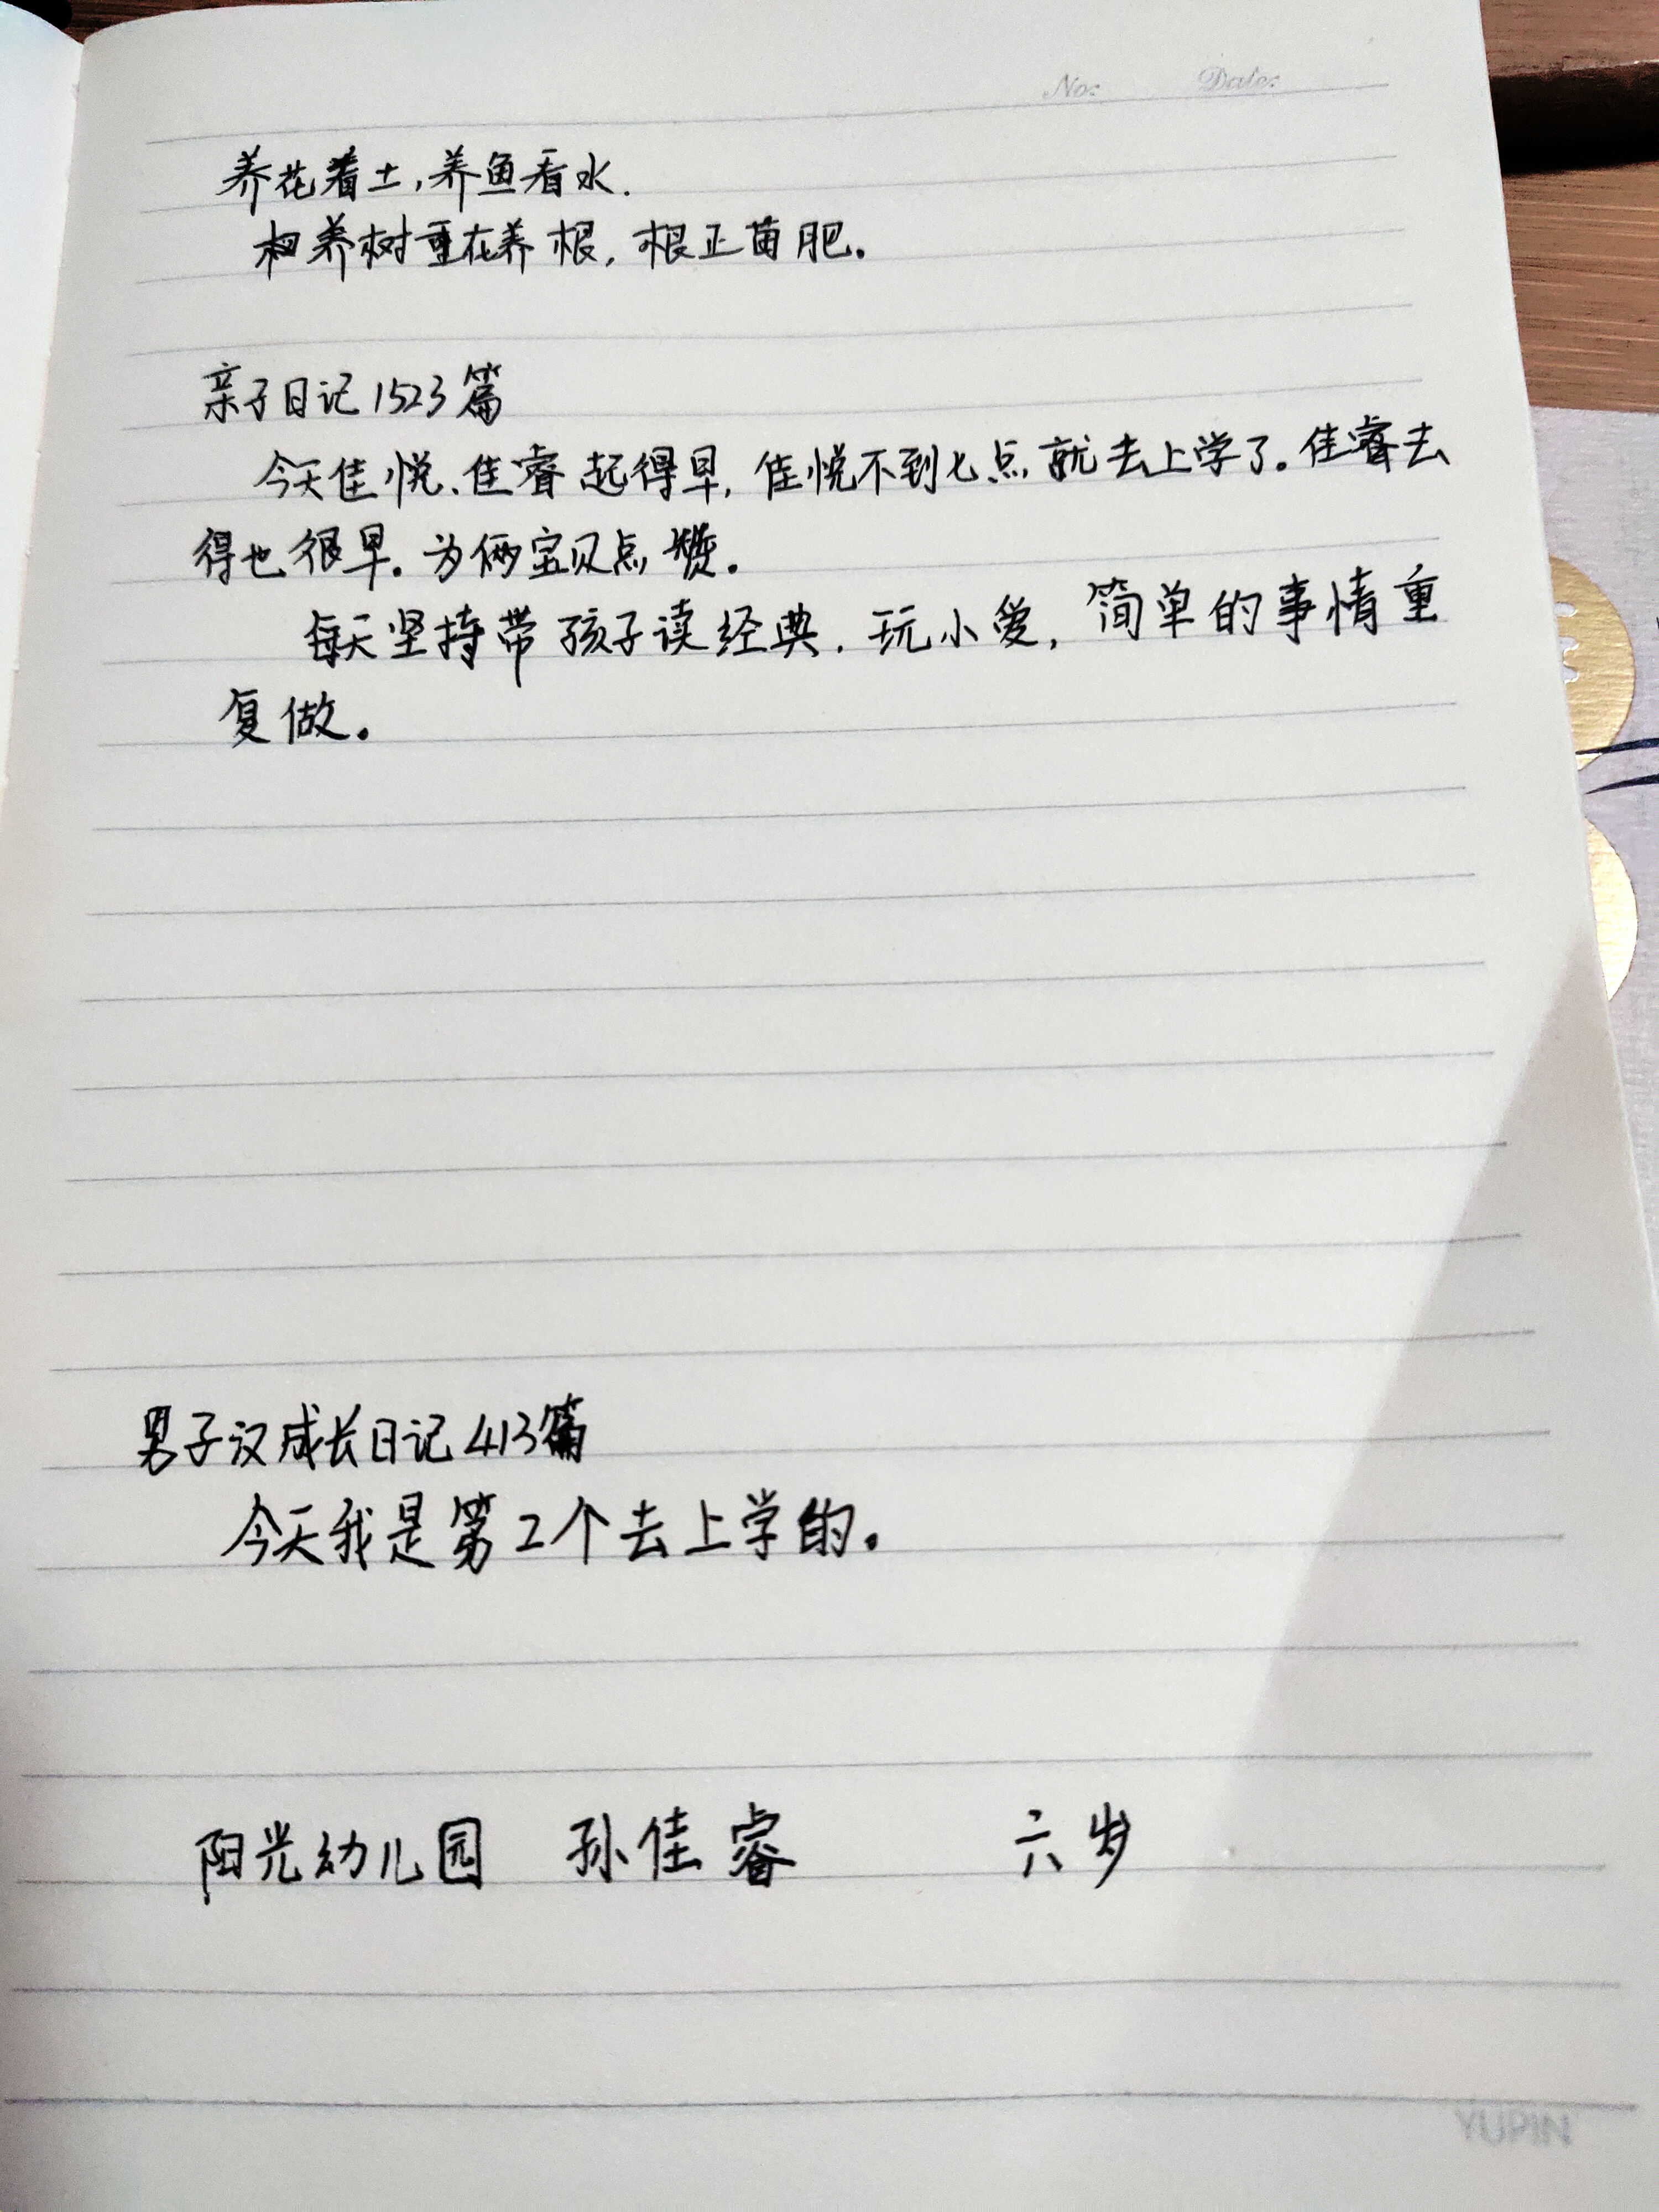 No: Date:
养花看土,养鱼看水.
养树重在养根,根正苗肥。
亲子日记1523篇
今天佳悦、佳睿起得早,佳悦不到七点就去上学了。佳睿去
得也很早。为俩宝贝点赞。
每天坚持带孩子读经典.玩小爱,简单的事情重
复做。
男子汉成长日记413篇
今天我是第2个去上学的。
阳光幼儿园 孙佳睿 六岁
YUPIN